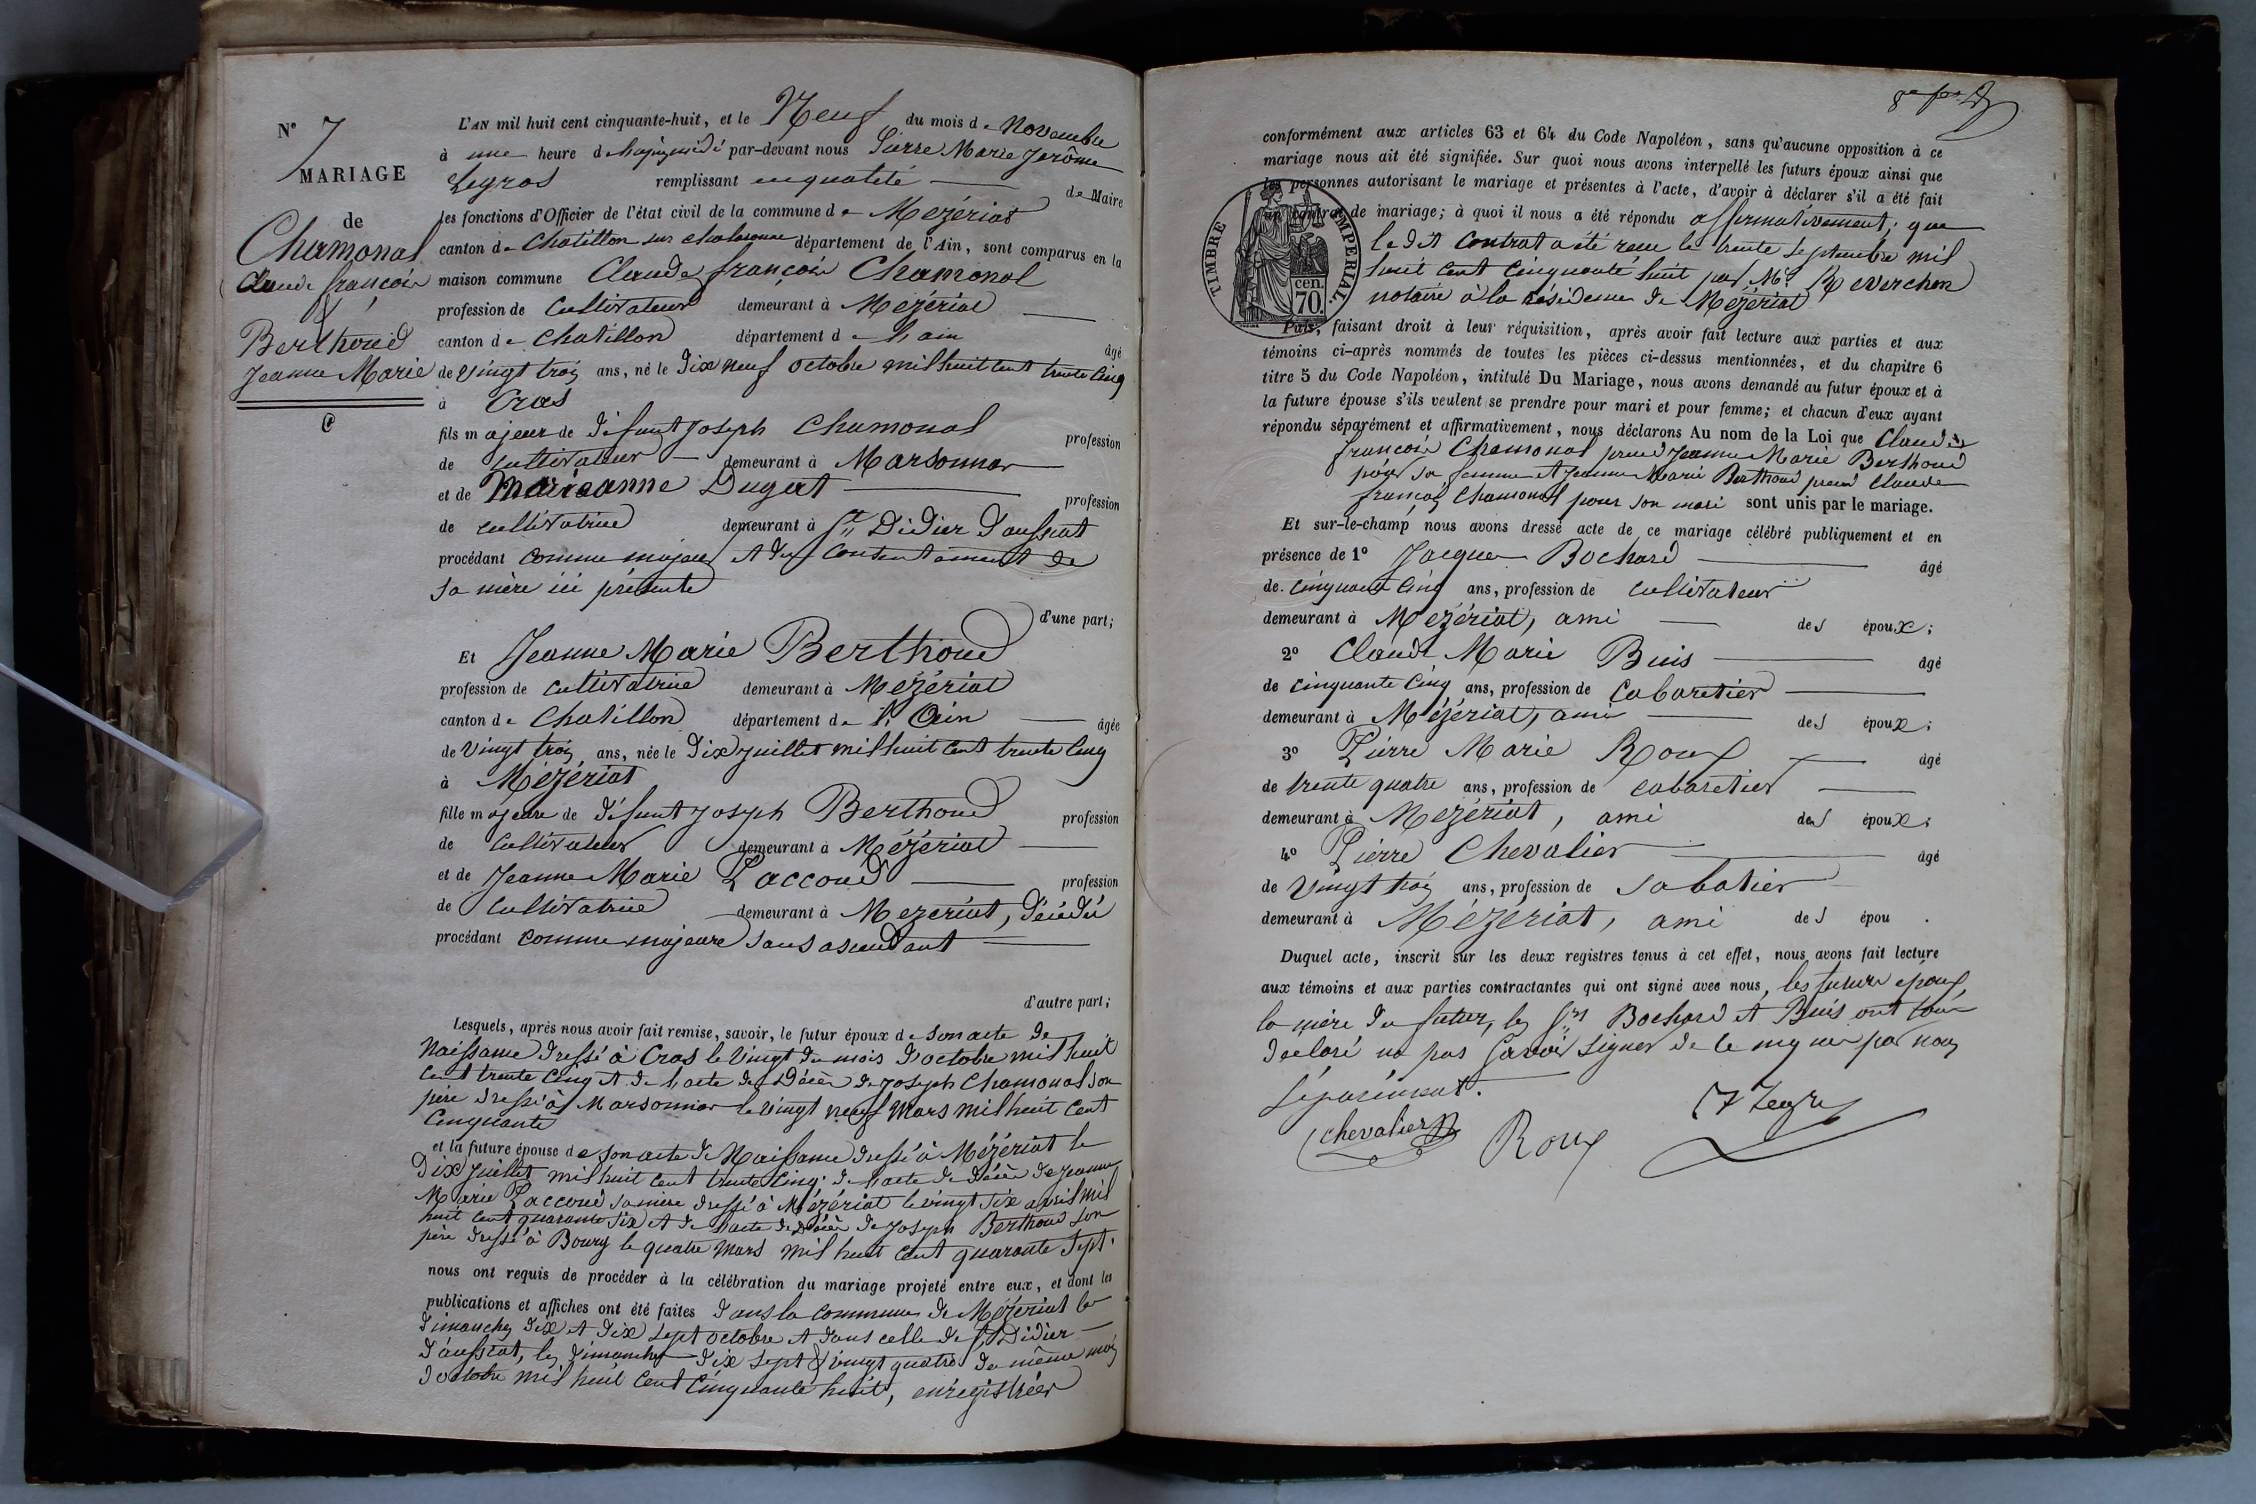 N° 7
MARIAGE
de
Chamonal
Claude françois
&
Berthoud
Jeanne Marie
L'AN mil huit cent cinquante-huit, et le Neuf du mois de Novembre
à une heure d par-devant nous Pierre Marie Jérôme
Legros remplissant en qualité de Maire
les fonctions d'Officier de l'état civil de la commune de Mézériat
canton de Chatillon sur chalaronne département de l'Ain, sont comparus en la
maison commune Claude françois Chamonal
profession de Cultivateur demeurant à Mézériat
canton de Chatillon département de l'ain âgé
de vingt trois ans, né le Dix neuf octobre mil huit cent trente cinq
à Cras
fils majeur de défunt Joseph Chamonal profession
de cultivateur demeurant à Marsonnas
et de Marieanne Dugat profession
de cultivatrice demeurant à St Didier d'aussiat
procédant comme majeur et du consentement de
sa mère ici présente
d'une part;
Et Jeanne Marie Berthoud
profession de cultivatrice demeurant à Mézériat
canton de Chatillon département de l'Ain âgée
de vingt trois ans, née le Dix juillet mil huit cent trente cinq
à Mézériat
fille majeure de défunt Joseph Berthoud profession
de Cultivateur demeurant à Mézériat
et de Jeanne Marie Paccoud profession
de Cultivatrice demeurant à Mezeriat, décédée
procédant comme majeure sans ascendant
d'autre part;
Lesquels, après nous avoir fait remise, savoir, le futur époux de son acte de
Naissance dressé à Cras le vingt du mois d'octobre mil huit
cent trente cinq et de l'acte de Décès de Joseph Chamonal son
père dressé à Marsonnas le vingt neuf Mars mil huit cent
cinquante
et la future épouse de son acte de Naissance dressé à Mézériat le
Dix Juillet mil huit cent trente cinq; de l'acte de décès de Jeanne
Marie Paccoud sa mère dressé à Mézériat le vingt six avril mil
huit cent quarante six et de l'acte de Décès de Joseph Berthoud son
père dressé à Bourg le quatre Mars mil huit cent quarante sept.
nous ont requis de procéder à la célébration du mariage projeté entre eux, et dont les
publications et affiches ont été faites dans la commune de Mézériat les
dimanches dix et dix sept octobre et dans celle de St Didier
d'aussiat, les dimanches dix sept & vingt quatre du même mois
d'octobre mil huit cent cinquante huit, enregistrées
conformément aux articles 63 et 64 du Code Napoléon, sans qu'aucune opposition à ce
mariage nous ait été signifiée. Sur quoi nous avons interpellé les futurs époux ainsi que
les personnes autorisant le mariage et présentes à l'acte, d'avoir à déclarer s'il a été fait
un contrat de mariage; à quoi il nous a été répondu affirmativement; que
le dit contrat a été reçu le trente septembre mil
huit cent cinquante huit par Me Reverchon
notaire à la résidence de Mézériat
TIMBRE IMPERIAL.
cen.
70.
Puis, faisant droit à leur réquisition, après avoir fait lecture aux parties et aux
témoins ci-après nommés de toutes les pièces ci-dessus mentionnées, et du chapitre 6
titre 5 du Code Napoléon, intitulé Du Mariage, nous avons demandé au futur époux et à
la future épouse s'ils veulent se prendre pour mari et pour femme; et chacun d'eux ayant
répondu séparément et affirmativement, nous déclarons Au nom de la Loi que Claude
françois Chamonal prend Jeanne Marie Berthoud
pour sa femme et Jeanne Marie Berthoud prend Claude
françois Chamonal pour son mari sont unis par le mariage.
Et sur-le-champ nous avons dressé acte de ce mariage célébré publiquement et en
présence de 1° Jacques Bochard âgé
de cinquante cinq ans, profession de cultivateur
demeurant à Mézériat, ami des époux;
2° Claude Marie Buis âgé
de cinquante cinq ans, profession de cabaretier
demeurant à Mézériat, ami des époux;
3° Pierre Marie Roux âgé
de trente quatre ans, profession de cabaretier
demeurant à Mezériat, ami des époux;
4° Pierre Chevalier âgé
de vingt trois ans, profession de sabotier
demeurant à Mézériat, ami des épou .
Duquel acte, inscrit sur les deux registres tenus à cet effet, nous avons fait lecture
aux témoins et aux parties contractantes qui ont signé avec nous, les futurs époux,
la mère du futur, les Srs Bochard et Buis ont tous
déclaré ne pas savoir signer de ce enquis par nous
séparément.
chevalier Roux